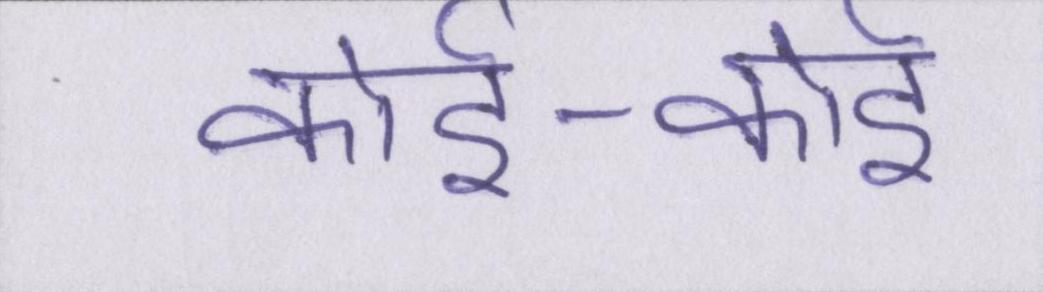 कोई-कोई